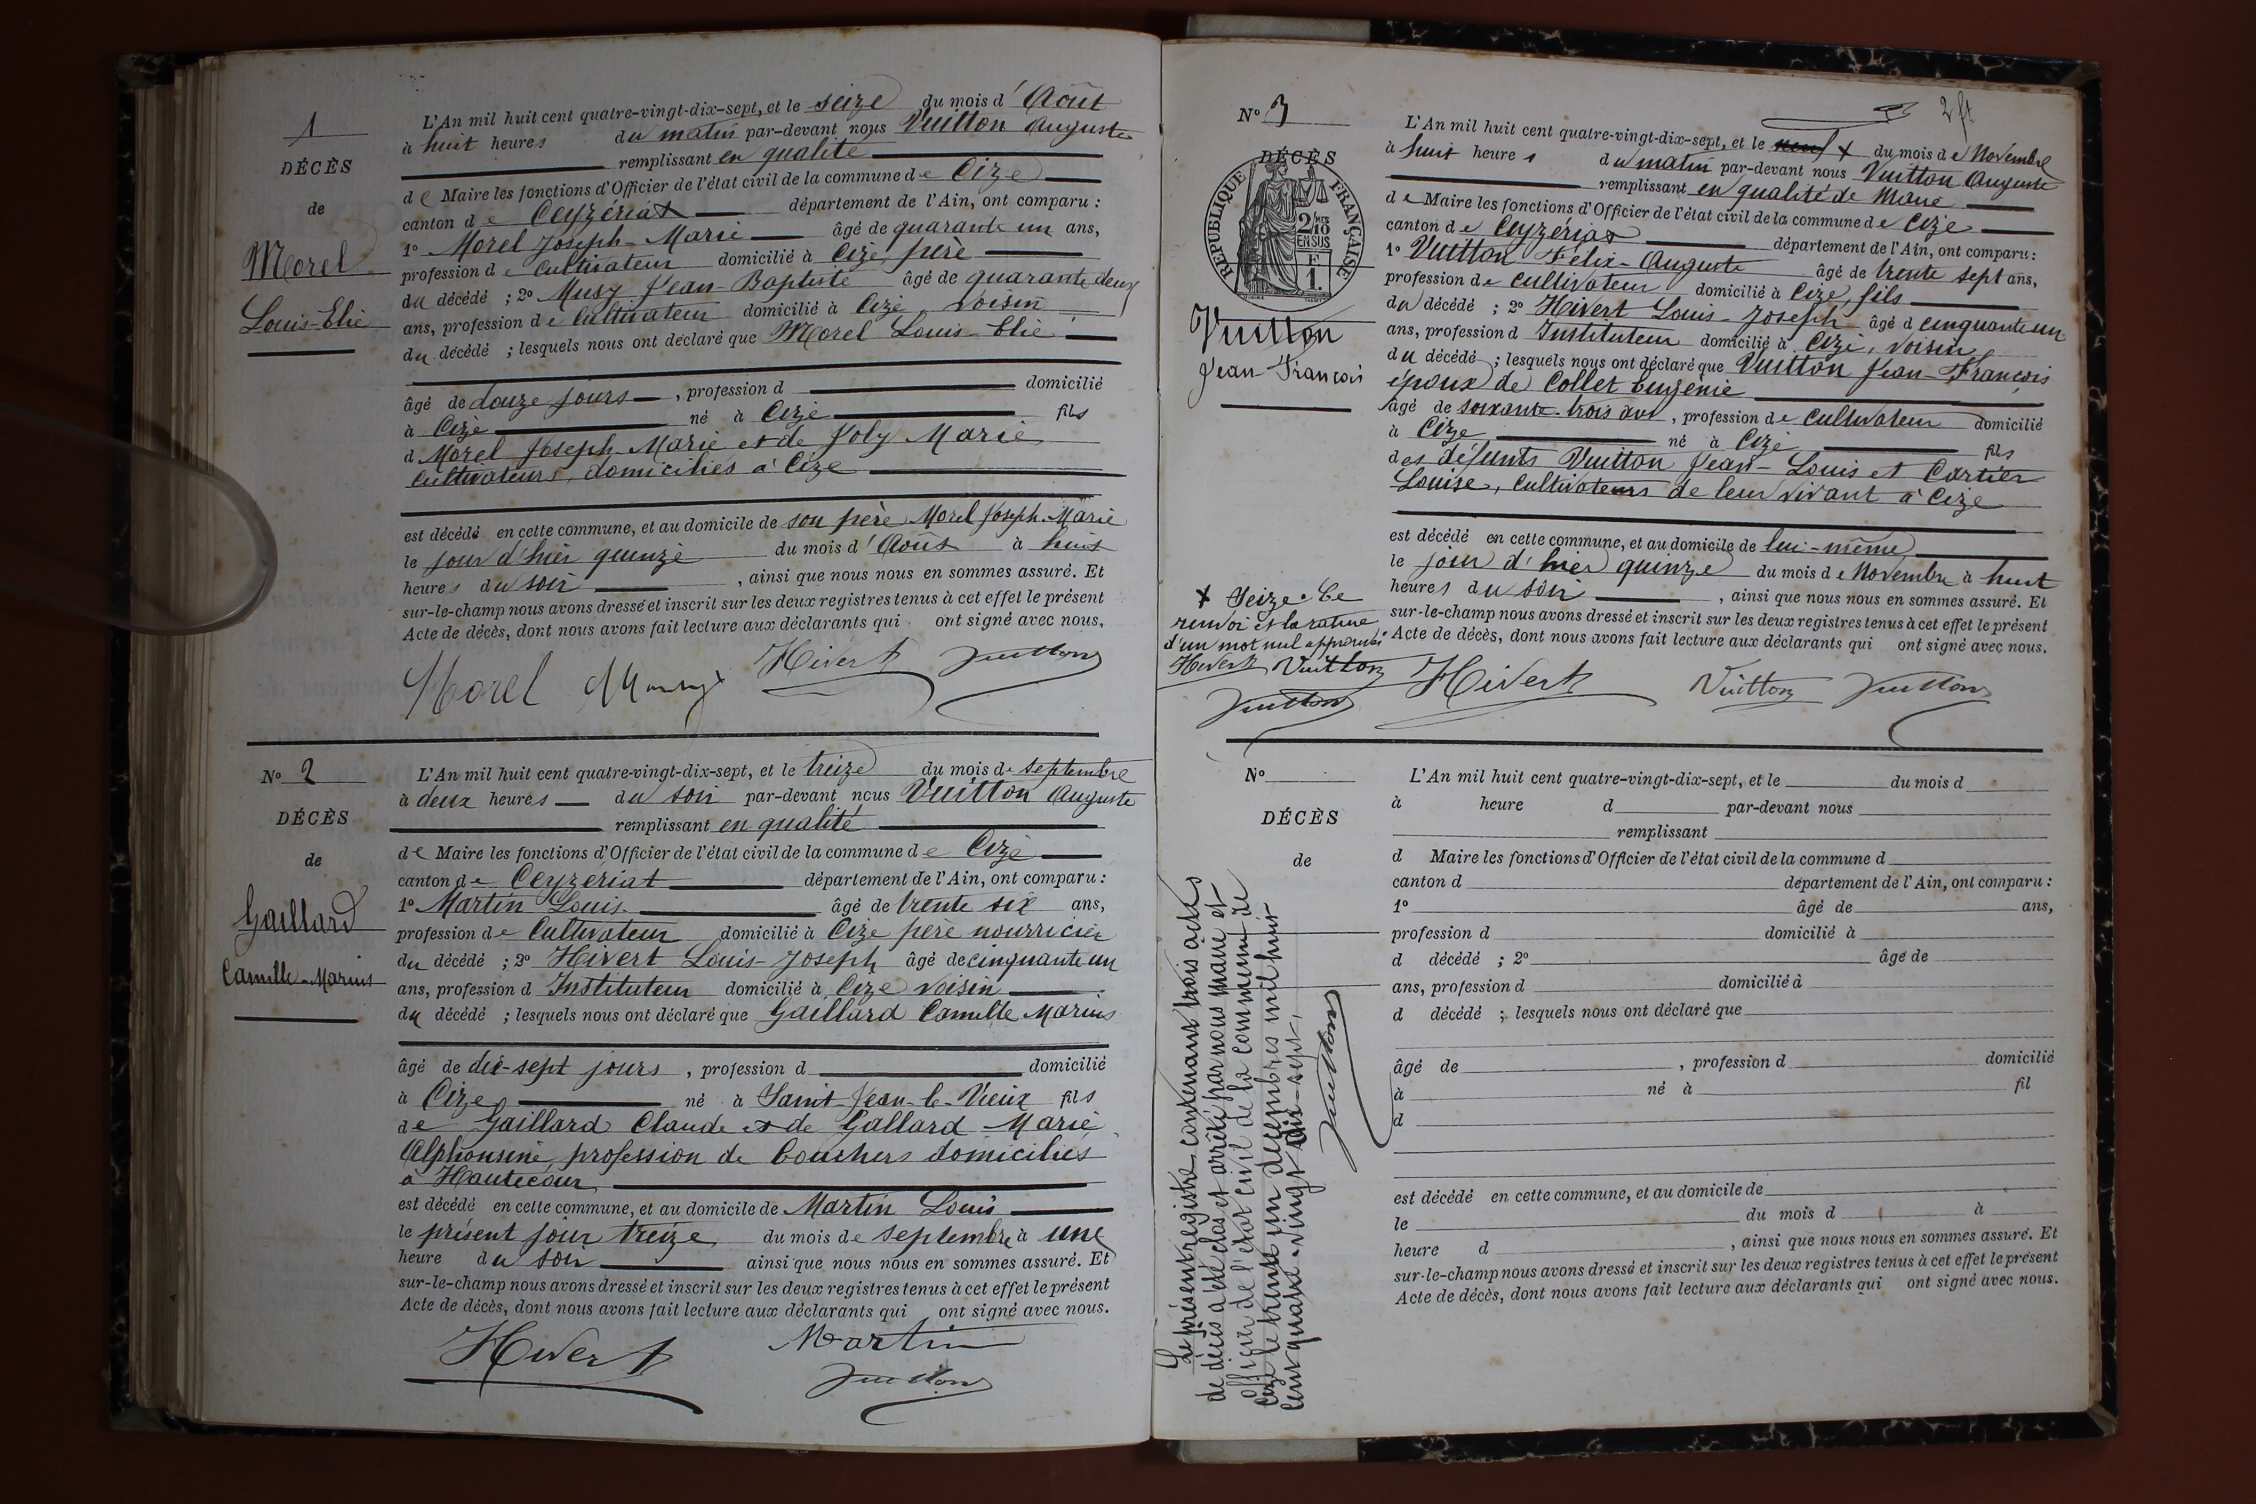 1
DÉCÈS
de
Morel
Louis-Elie
L'An mil huit cent quatre-vingt-dix-sept, et le seize du mois d'Août
à huit heures du matin par-devant nous Vuitton Auguste
remplissant en qualité
de Maire les fonctions d'Officier de l'état civil de la commune de Cize
canton de Ceyzériat département de l'Ain, ont comparu :
1º Morel Joseph-Marie âgé de quarante un ans,
profession de cultivateur domicilié à Cize, père
du décédé ; 2º Musy Jean-Baptiste âgé de quarante deux
ans, profession de cultivateur domicilié à Cize voisin
du décédé ; lesquels nous ont déclaré que Morel Louis-Elie
âgé de douze jours, profession d domicilié
à Cize né à Cize fils
d Morel Joseph-Marie et de Joly Marie
cultivateurs, domiciliés à Cize
est décédé en cette commune, et au domicile de son père Morel Joseph-Marie
le jour d'hier quinze du mois d'Août à huit
heures du soir, ainsi que nous nous en sommes assuré. Et
sur-le-champ nous avons dressé et inscrit sur les deux registres tenus à cet effet le présent
Acte de décès, dont nous avons fait lecture aux déclarants qui ont signé avec nous.
Morel Hivert Vuitton
Nº 2
DÉCÈS
de
Gaillard
Camille-Marius
L'An mil huit cent quatre-vingt-dix-sept, et le treize du mois de septembre
à deux heures du soir par-devant nous Vuitton Auguste
remplissant en qualité
de Maire les fonctions d'Officier de l'état civil de la commune de Cize
canton de Ceyzeriat département de l'Ain, ont comparu :
1º Martin Louis âgé de trente six ans,
profession de Cultivateur domicilié à Cize père nourricier
du décédé ; 2º Hivert Louis-Joseph âgé de cinquante un
ans, profession d Instituteur domicilié à Cize voisin
du décédé ; lesquels nous ont déclaré que Gaillard Camille Marius
âgé de dix-sept jours, profession d domicilié
à Cize né à Saint-Jean-le-Vieux fils
de Gaillard Claude et de Gallard Marie
Alphonsine, profession de bouchers domiciliés
à Hautecour
est décédé en cette commune, et au domicile de Martin Louis
le présent jour treize du mois de septembre à une
heure du soir ainsi que nous nous en sommes assuré. Et
sur-le-champ nous avons dressé et inscrit sur les deux registres tenus à cet effet le présent
Acte de décès, dont nous avons fait lecture aux déclarants qui ont signé avec nous.
Hivert Martin
Vuitton
2 ft
Nº 3
DÉCÈS
RÉPUBLIQUE FRANÇAISE
2/10 EN SUS
F
1.
Vuitton
Jean François
L'An mil huit cent quatre-vingt-dix-sept, et le neuf x du mois de Novembre
à huit heures du matin par-devant nous Vuitton Auguste
remplissant en qualité de Maire
de Maire les fonctions d'Officier de l'état civil de la commune de Cize
canton de Ceyzériat département de l'Ain, ont comparu :
1º Vuitton Félix-Auguste âgé de trente sept ans,
profession de cultivateur domicilié à Cize, fils
du décédé ; 2º Hivert Louis-Joseph âgé d cinquante un
ans, profession d Instituteur domicilié à Cize, voisin
du décédé ; lesquels nous ont déclaré que Vuitton Jean-François
époux de Collet Eugénie
âgé de soixante-trois ans, profession de cultivateur domicilié
à Cize né à Cize fils
des défunts Vuitton Jean-Louis et Cartier
Louise, cultivateurs de leur vivant à Cize
est décédé en cette commune, et au domicile de lui-même
le jour d'hier quinze du mois de Novembre à huit
heures du soir, ainsi que nous nous en sommes assuré. Et
sur-le-champ nous avons dressé et inscrit sur les deux registres tenus à cet effet le présent
Acte de décès, dont nous avons fait lecture aux déclarants qui ont signé avec nous.
x Seize. Ce
renvoi et la rature
d'un mot nul approuvés
Hivert Vuitton
Vuitton
Hivert Vuitton Vuitton
Nº
DÉCÈS
de
L'An mil huit cent quatre-vingt-dix-sept, et le du mois d
à heure d par-devant nous
remplissant
d Maire les fonctions d'Officier de l'état civil de la commune d
canton d département de l'Ain, ont comparu :
1º âgé de ans,
profession d domicilié à
d décédé ; 2º âgé de
ans, profession d domicilié à
d décédé ; lesquels nous ont déclaré que
âgé de , profession d domicilié
à né à fil
d
est décédé en cette commune, et au domicile de
le du mois d à
heure d , ainsi que nous nous en sommes assuré. Et
sur-le-champ nous avons dressé et inscrit sur les deux registres tenus à cet effet le présent
Acte de décès, dont nous avons fait lecture aux déclarants qui ont signé avec nous.
Le présent registre contenant trois actes
de décès a été clos et arrêté par nous maire et
officier de l'état civil de la commune de
Cize le trente un décembre mil huit
cent quatre-vingt dix-sept.
Vuitton